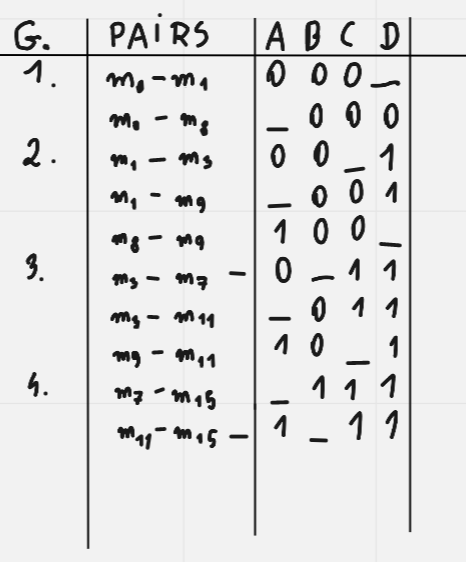 G. PAiRS A B C D
1. m0 - m1 0 0 0 _
m0 - m8 _ 0 0 0
2. m1 - m3 0 0 _ 1
m1 - m9 _ 0 0 1
m8 - m9 1 0 0 _
3. m3 - m7 - 0 _ 1 1
m3 - m11 _ 0 1 1
m9 - m11 1 0 _ 1
4. m7 - m15 _ 1 1 1
m11 - m15 - 1 _ 1 1